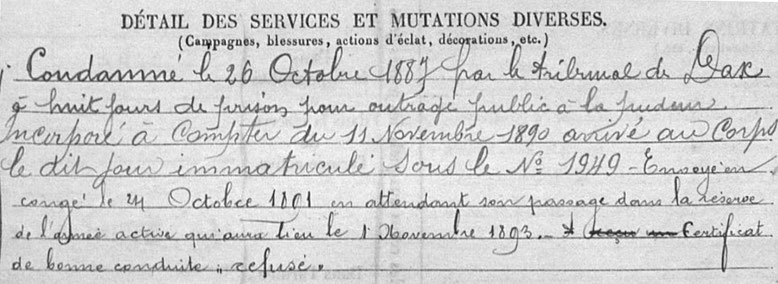 DÉTAIL DES SERVICES ET MUTATIONS DIVERSES.
(Campagnes, blessures, actions d'éclat, décorations, etc.)
Condamné le 26 Octobre 1887 par le tribunal de Dax
à huit jours de prison pour outrage public à la pudeur.
Incorporé à Compter du 11 Novembre 1890 arrivé au Corps
le dit jour immatriculé sous le No 1949 - Envoyé en
congé le 24 Octobre 1891 en attendant son passage dans la réserve
de l'armée active qui aura lieu le 1 Novembre 1893. - Certificat
de bonne conduite „ refusé.